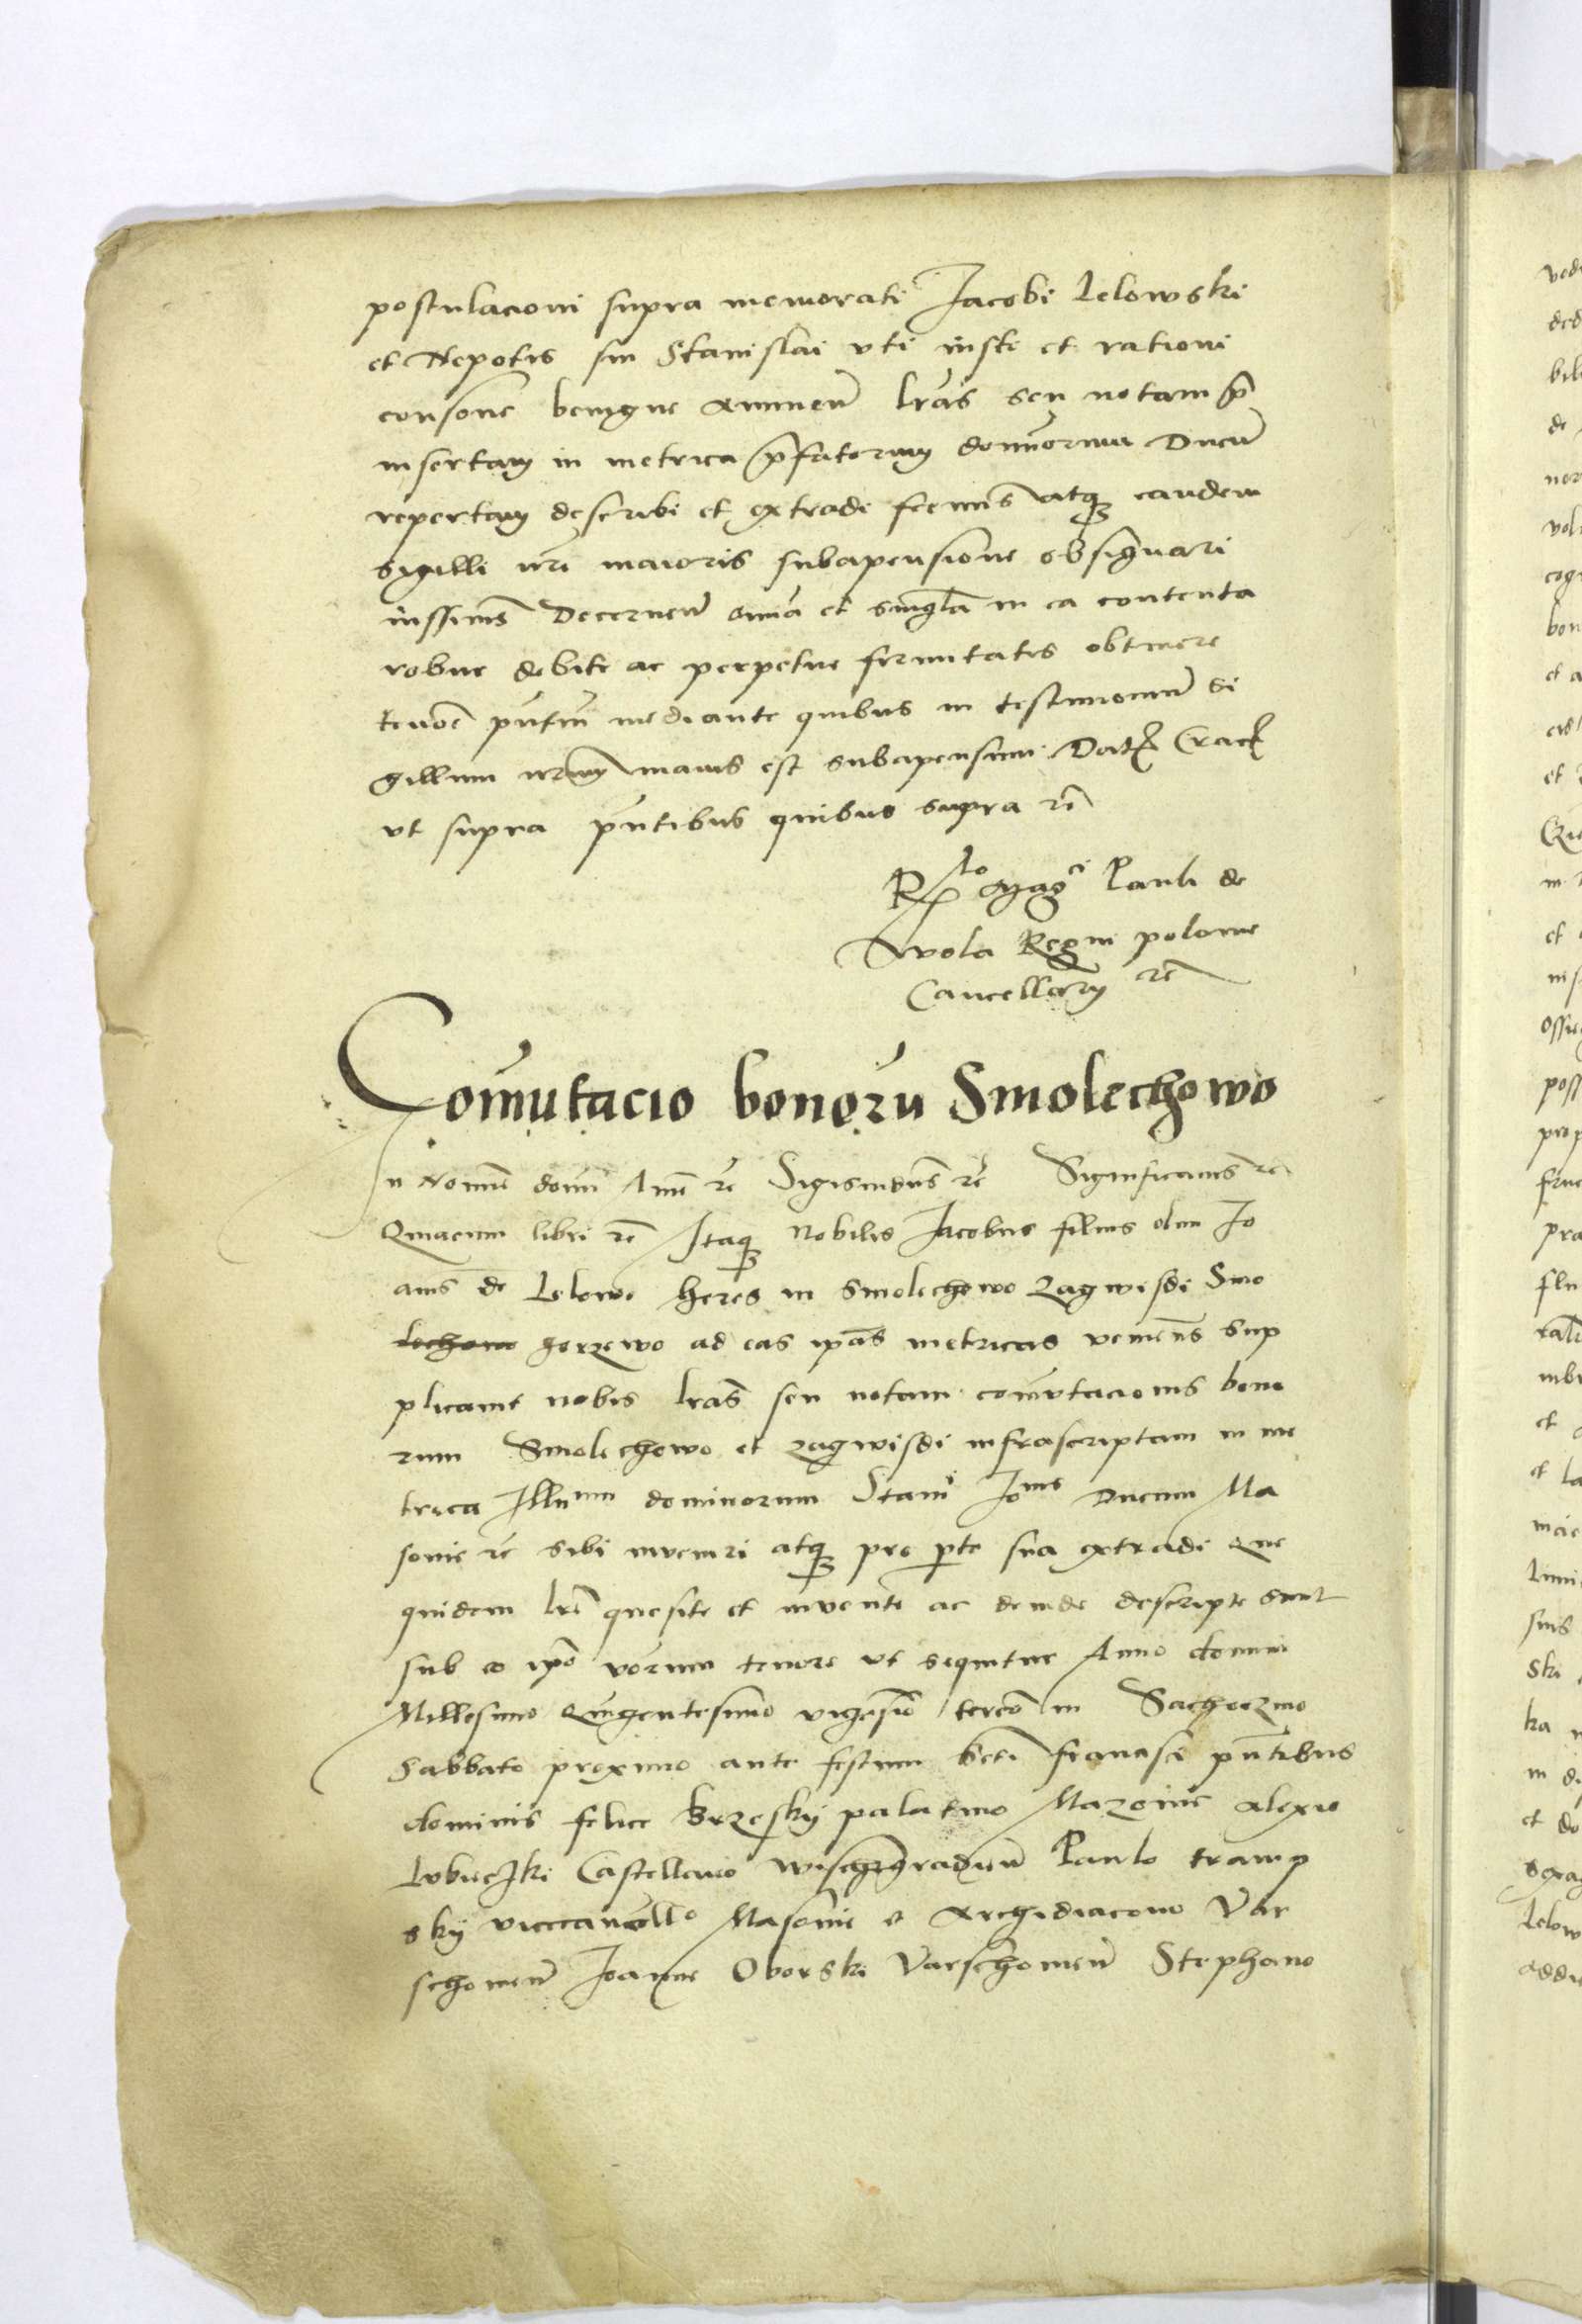 postulacioni supra memorati Jacobi Lelowski
et Nepotis sui Stanislai uti iusti et rationi
consone benigne annuen̄ lr̄as seu notam p̄
insertam in metrica p̄fatorum domīorum Ducū
repertam describi et extradi fecimus atqꝫ eandem
sigilli nr̄i maioris subapensione obsignari
iussimus Decernen̄ om̄ia et singl̄a in ea contenta
robur debite ac perpetue firmitatis obtinere
tenor̄e pn̄tiū mediante quibus in testimoniū si
gillum nr̄um maius est subapensum Datꝫ Crac
ut supra pn̄tibus quibus supra rc̄
Rlo Magci Pauli de
Wola Regni polonie
Cancellarij rc̄
Com̄utacio bonorū Smolechowo
In Nomīe domī Amē rc̄ Sigismūdus rc̄ Significamus rc̄
Quacum libri rc̄ Itaqꝫ Nobilis Jacobus filius olim Jo
anis de Lelowo heres in Smolechowo Zagwisdi Smo
lechowo gorzewo ad eas ip̄as metricas veniens sup
plicavit nobis lr̄as seu notam com̄utacionis bono
rum Smolechowo et Zagwisdi infrascriptam in me
trica Illum dominorum Stani Jonis Ducum Ma
sovie rc̄ sibi inveniri atqꝫ pro pte sua extradi Que
quidem lr̄e quesite et invente ac deinde descripte sunt
sub eo ip̄o verum tenore ut sequitur Anno domini
Millesimo Quīgentesimo vigesīo tercio in Sachoczino
Sabbato proximo ante festum bti francisci pn̄tibus
dominis felice Brzesky palatino Mazovie Alexio
Lubieczki Castellano Wischegradien̄ Paulo tramp
sky vicecancello Masovie et Archidiacono Var
schovien̄ Joanne Oborski Varschovien̄ Stephano